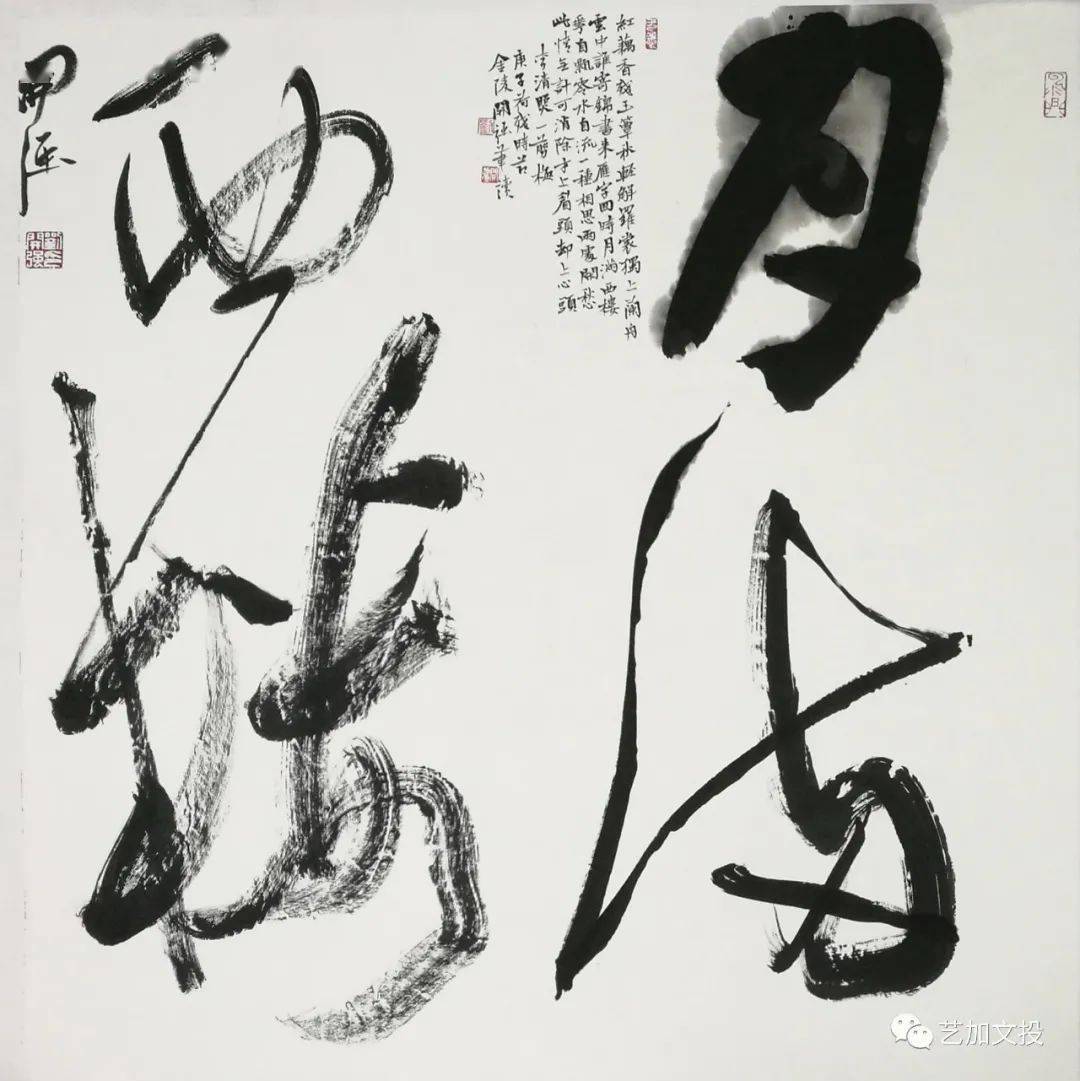 月滿
紅藕香殘玉簟秋輕解羅裳獨上蘭舟
雲中誰寄錦書来雁字回時月满西楼
華自飄零水自流一種相思兩處閑愁
此情无計可消除才上眉頭却上心頭
李清照一剪梅
庚子荷殘時節
金陵開强
西樓
開强
艺加文投